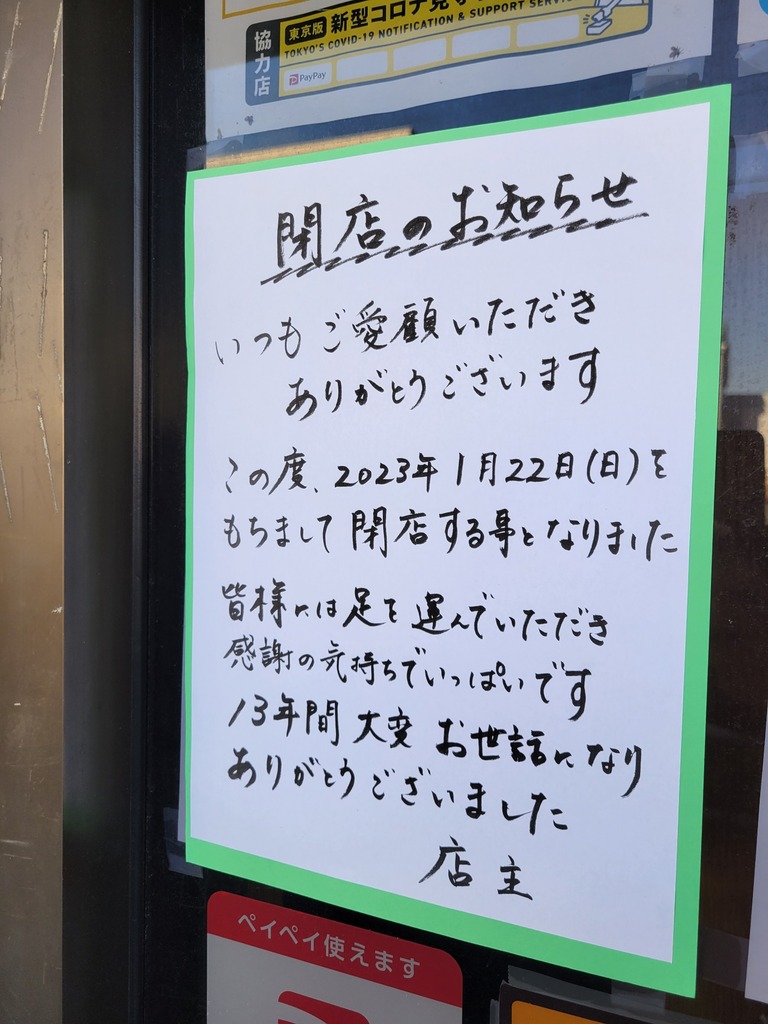 協力店
東京版 新型コロナ見守
TOKYO'S COVID-19 NOTIFICATION & SUPPORT SERVI
PayPay
閉店のお知らせ
いつもご愛顧いただき
ありがとうございます
この度、2023年1月22日(日)を
もちまして閉店する事となりました
皆様には足を運んでいただき
感謝の気持ちでいっぱいです
13年間大変お世話になり
ありがとうございました
店主
ペイペイ使えます